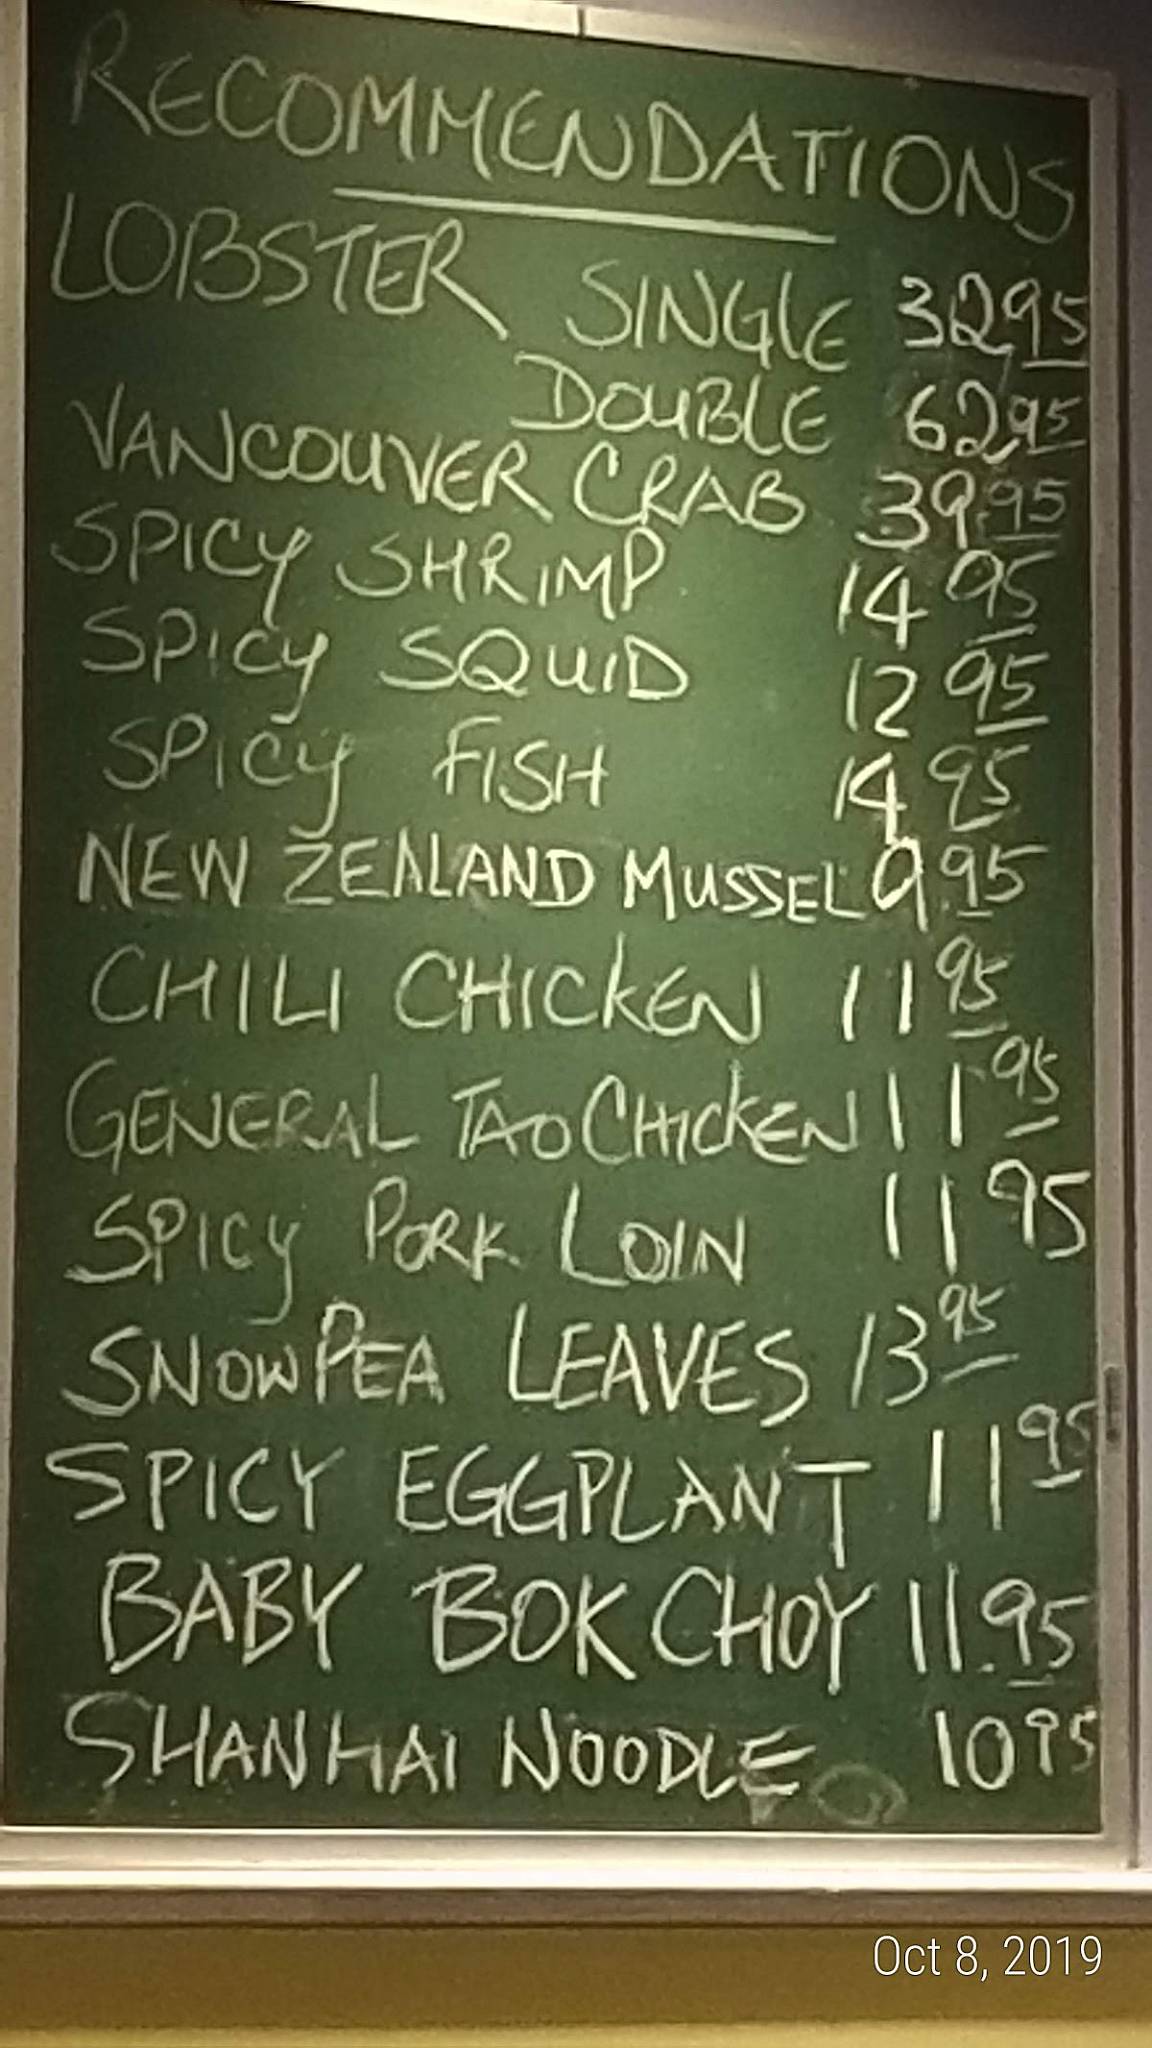 RECOMMENDATIONS
LOBSTER SINGLE 32.95
DOUBLE 62.95
VANCOUVER CRAB 39.95
SPICY SHRIMP 14 95
SPICY SQUID 12 95
SPICY FISH 14 95
NEW ZEALAND MUSSEL 9.95
CHILI CHICKEN 11 95
GENERAL TAO CHICKEN 11 95
SPICY PORK LOIN 11 95
SNOW PEA LEAVES 13 95
SPICY EGGPLANT 11 95
BABY BOK CHOY 11.95
SHANHAI NOODLE 10 95
Oct 8, 2019